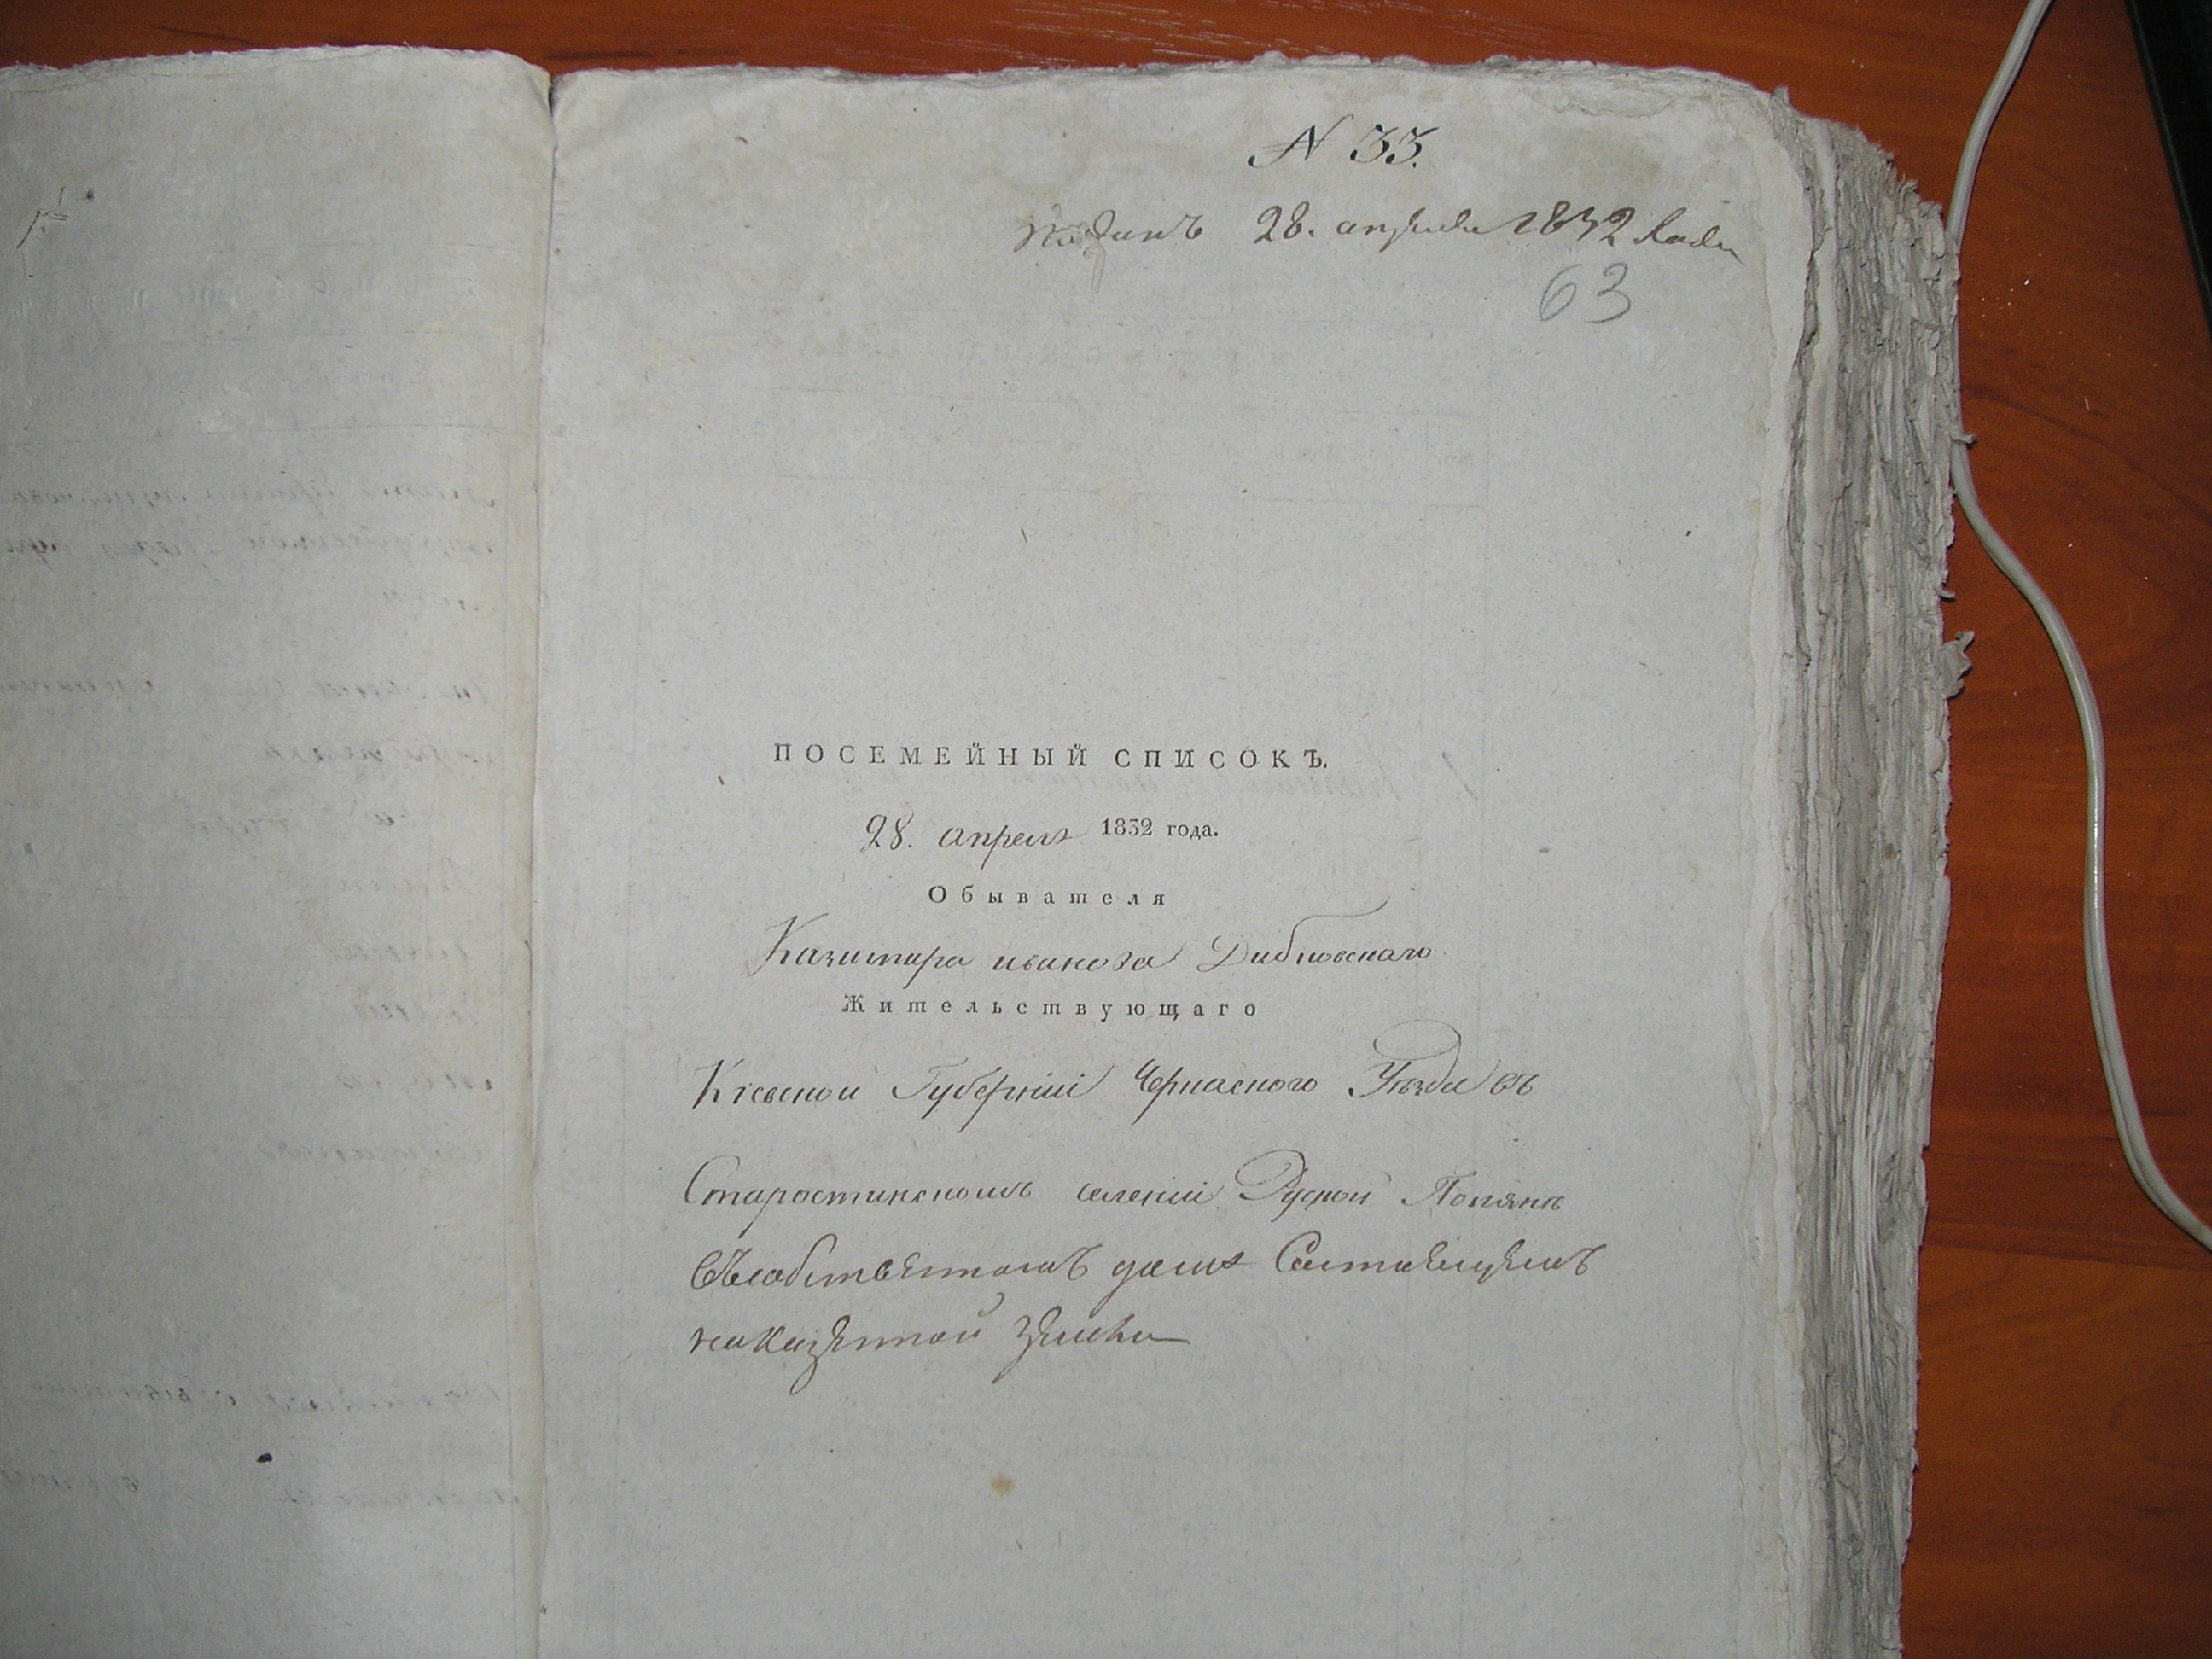 N 33.
поданъ 28. апреля 1832 года
63
ПОСЕМЕЙНЫЙ СПИСОКЪ.
28. апреля 1832 года.
Обывателя
Казимира иванова Дибловскаго
Жительствующаго
Кіевской Губерніи Черкаского Уезда въ
Старостинскомъ селеніи Руской Поляне
въ собственномъ доме Состоящемъ
на казенной земли